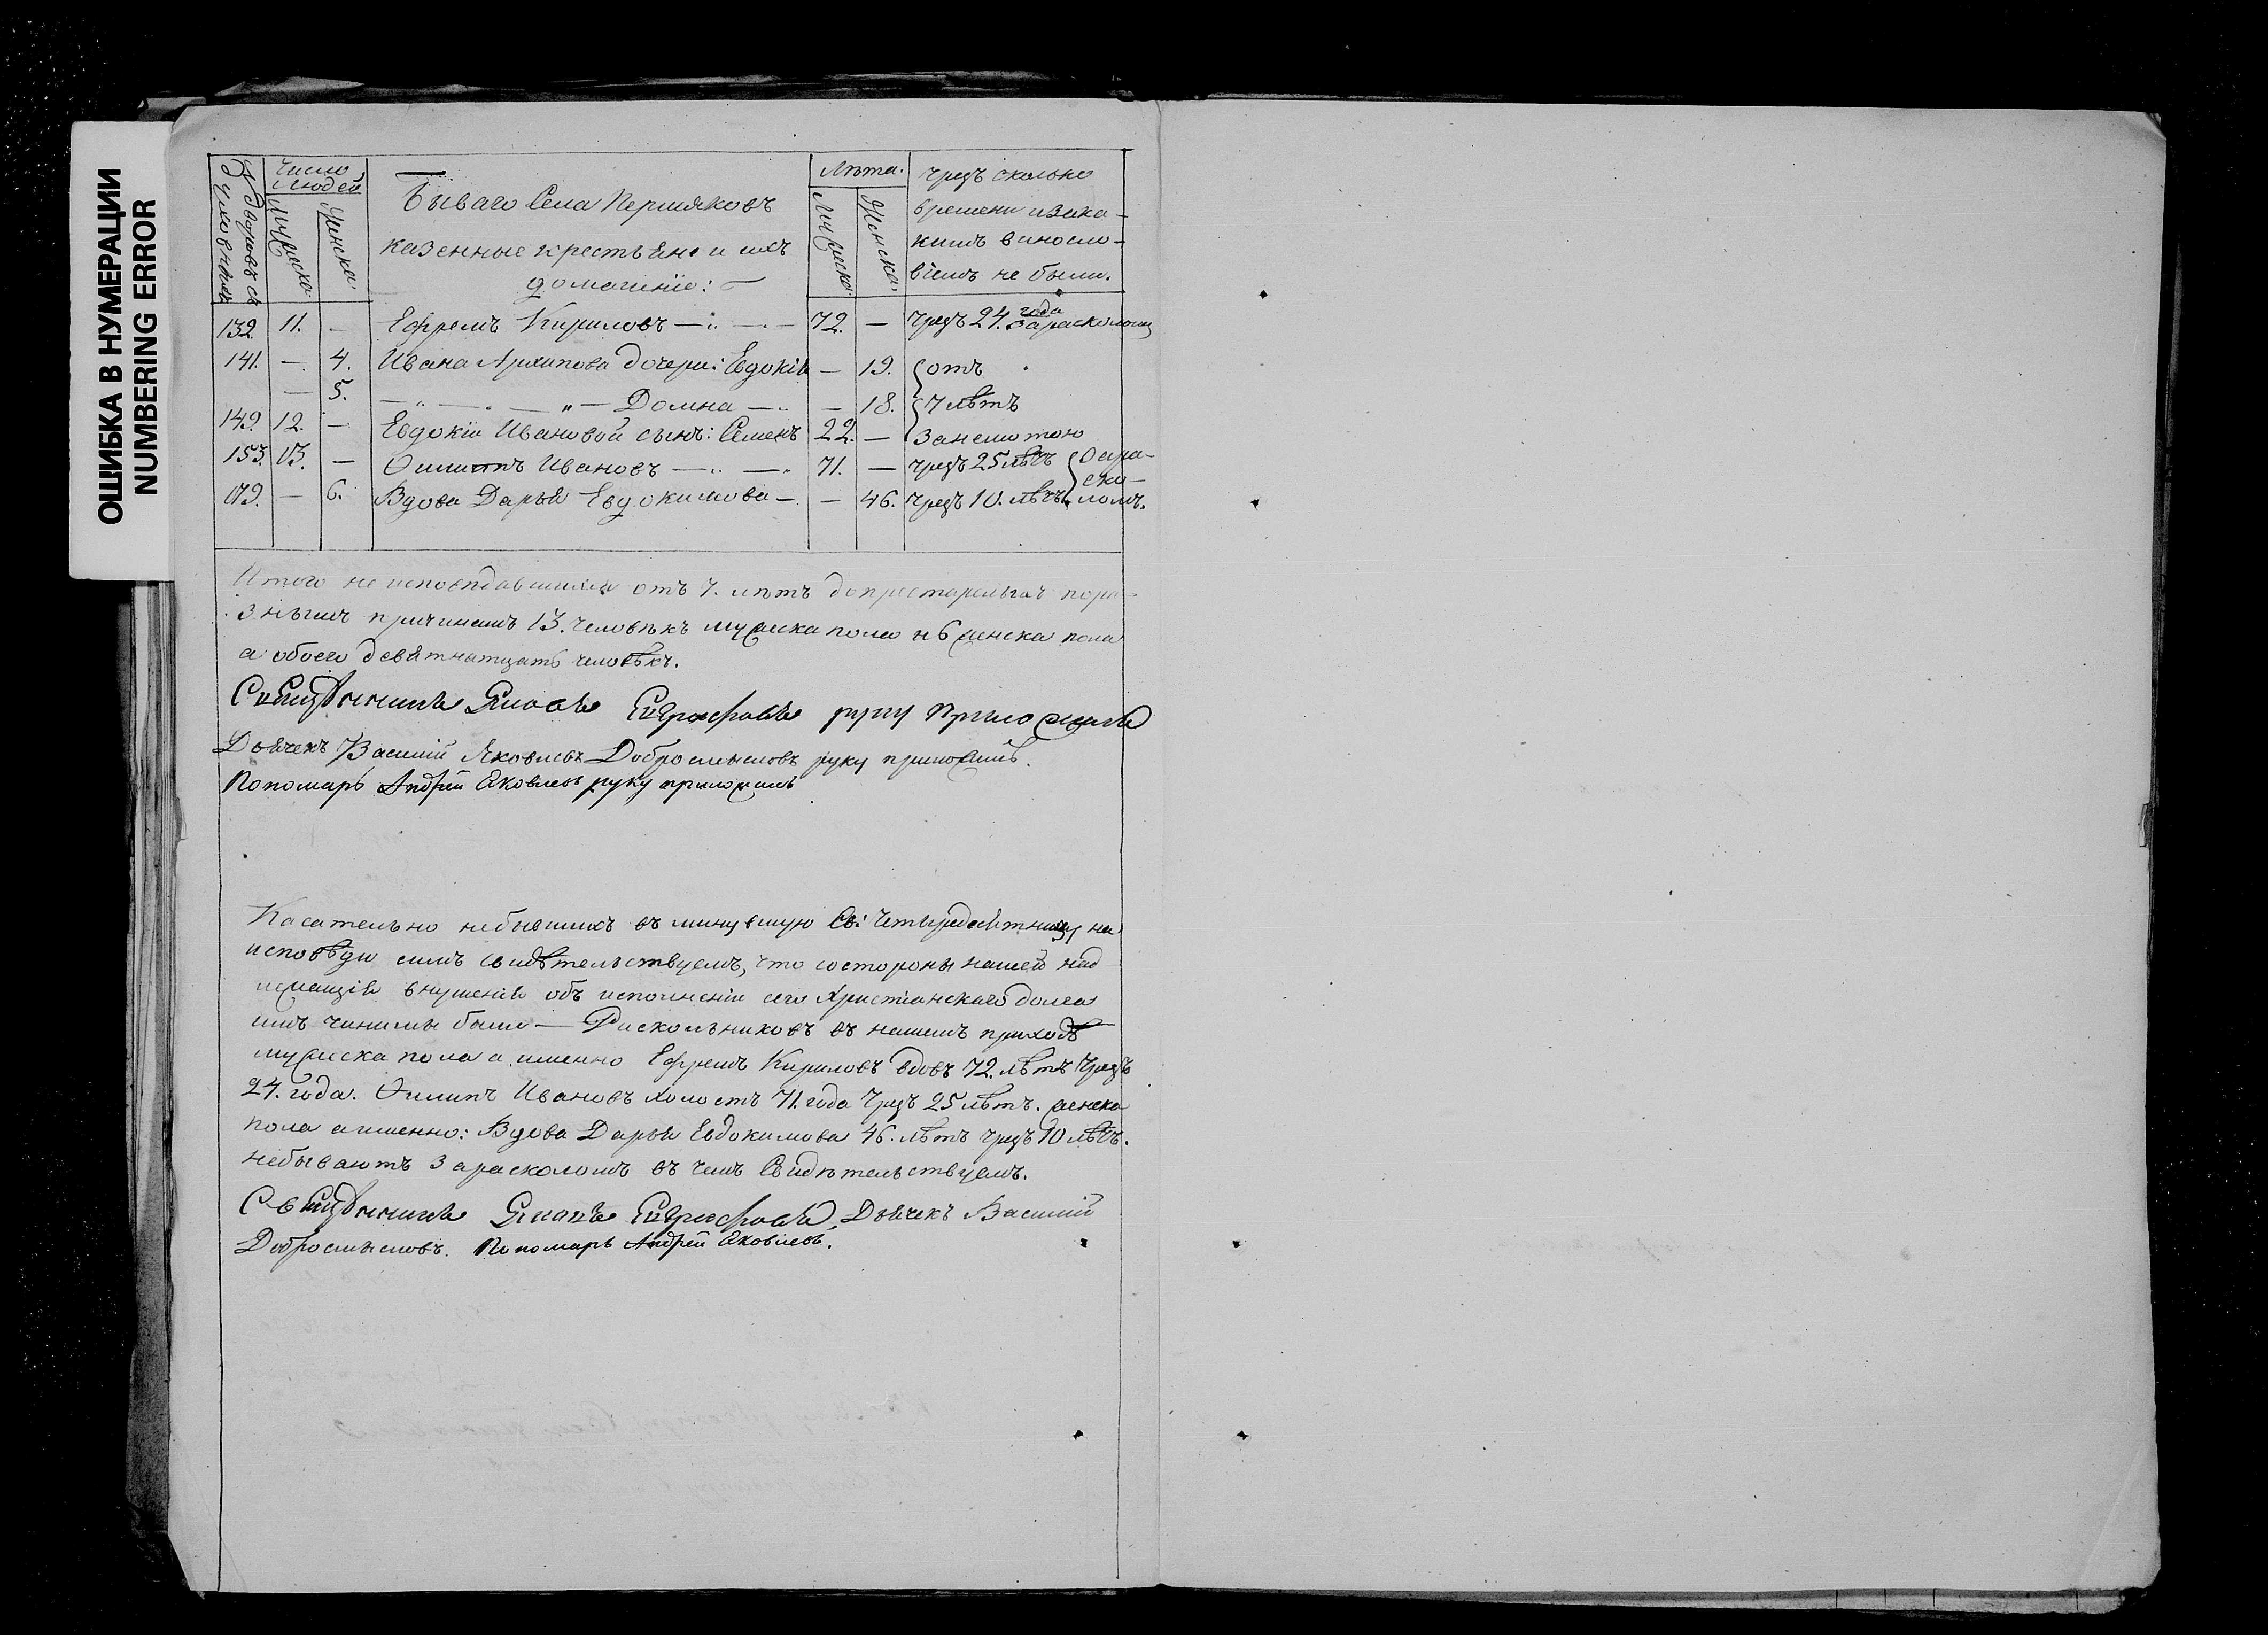 ОШИБКА В НУМЕРАЦИИ
NUMBERING ERROR
№ дворовъ съ духовными
Число людей
Мужеска.
Женска.
Бываго Села Першяковъ
казенные крестьяне и ихъ
домашніе:
Лѣта.
Мужеска.
Женска.
чрезъ сколько
времени и за ка-
кимъ винословіемъ не были.
132. 11. — Ефремъ Кириловъ — 72. — чрезъ 24. года за расколомъ
141. — 4. Ивана Архипова дочери: Евдокія — 19. отъ
— 5. — „ — Домна — — 18. 7 лѣтъ
149. 12. — Евдокіи Ивановой сынъ: Семенъ 22. — За немотою
153. 13. — Ѳилиппъ Ивановъ — 71. — чрезъ 25 лѣтъ За ра-
179. — 6. Вдова Дарья Евдокимова — — 46. чрезъ 10. лѣтъ ско-ломъ.
Итого не исповѣдавшихся отъ 7. лѣтъ до престарелыхъ по ра-
знымъ причинамъ 13. человѣкъ мужеска пола и 6 женска пола
а обоего девятнатцать человѣкъ.
Священникъ руку приложилъ
Дьячекъ Василій Яковлевъ Добросмысловъ руку приложилъ.
Пономарь Андрей Яковлевъ руку приложилъ
Касательно небывшихъ въ минувшую Св: Четыредесятницу на
исповѣди симъ свидѣтельствуемъ, что со стороны нашей над
лежащія внушенія объ исполненіи сего Христіанскаго долга
имъ чинимы были — Раскольниковъ въ нашемъ приходѣ
мужеска пола а именно Ефремъ Кириловъ вдовъ 72. лѣтъ Чрезъ
24. года. Ѳилипъ Ивановъ холостъ 71. года Чрезъ 25 лѣтъ. женска
пола а именно: Вдова Дарья Евдокимова 46. лѣтъ чрезъ 10 лѣтъ.
небываютъ За расколомъ въ чемъ Свидѣтельствуемъ.
Священникъ Дьячекъ Василій
Добросмысловъ. Пономарь Андрей Яковлевъ.